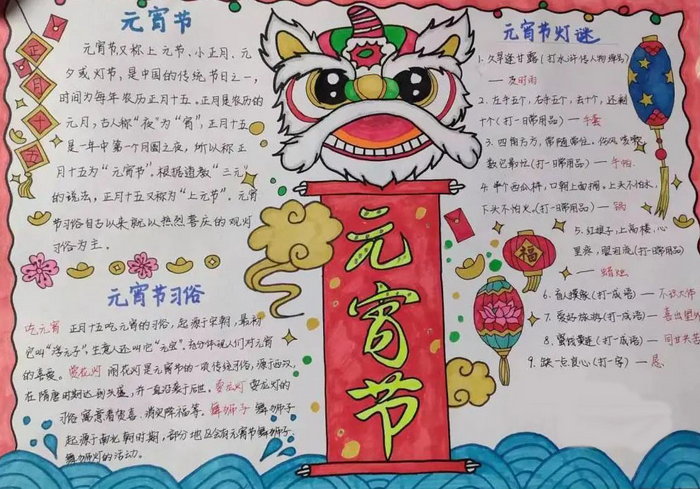 正月十五
元宵节
元宵节又称上元节、小正月、元
夕或灯节，是中国的传统节日之一，
时间为每年农历正月十五。正月是农历的
元月，古人称“夜”为“宵”，正月十五
是一年中第一个月圆之夜，所以称正
月十五为“元宵节”。根据道教“三元”
的说法，正月十五又称为“上元节”。元宵
节习俗自古以来就以热烈喜庆的观灯
习俗为主。
元宵节习俗
吃元宵 正月十五吃元宵的习俗，起源于宋朝，最初
它叫“浮元子”，生意人还叫它“元宝”。充分体现人们对元宵
的喜爱。赏花灯 闹花灯是元宵节的一项传统习俗，源于西汉，
在隋唐时期达到兴盛，并一直沿袭于后世。耍龙灯 耍龙灯的
习俗寓意着贺喜、消灾降福等。舞狮子 舞狮子
起源于南北朝时期，部分地区会有元宵节舞狮子、
舞狮灯的活动。
元宵节
元宵节灯谜
1. 久旱逢甘露(打水浒传人物绰号)
— 及时雨
2. 左手五个，右手五个，去十个，还剩
十个(打一日常用品) — 手套
3. 四角方方，常随常往，伤风咳嗽，
数它最忙(打一日常用品) — 手帕
4. 半个西瓜样，口朝上面搁，上头不怕水，
下头不怕火。(打一日常用品) — 锅
5. 红娘子，上高楼，心
里疼，眼泪流(打一日常用品)
— 蜡烛
福
6. 盲人摸象(打一成语) — 不识大体
7. 爱好旅游(打一成语) — 喜出望外
8. 蟹饯黄连(打一成语) — 同甘共苦
9. 缺一点良心(打一字) — 恳